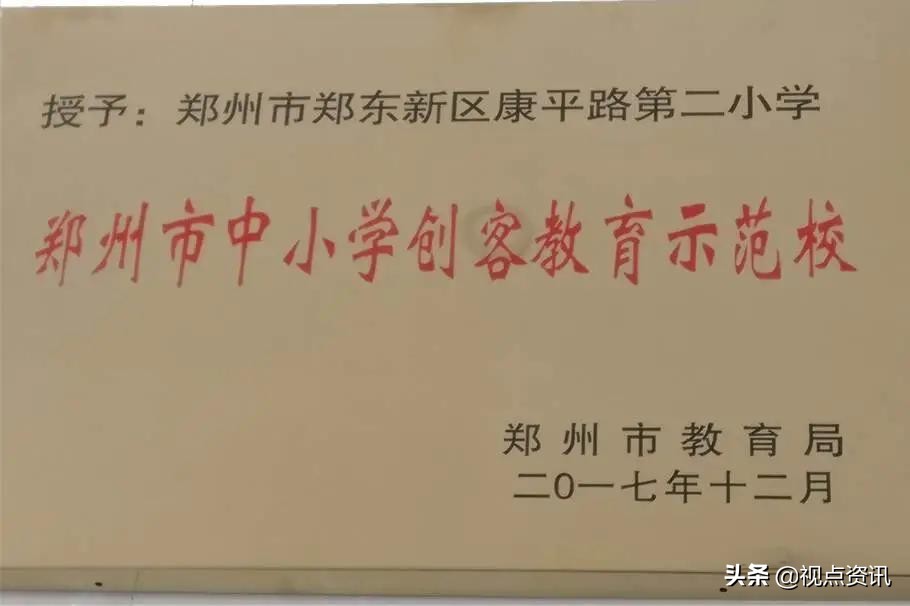 授予：郑州市郑东新区康平路第二小学
郑州市中小学创客教育示范校
郑州市教育局
二0一七年十二月
头条 @视点资讯